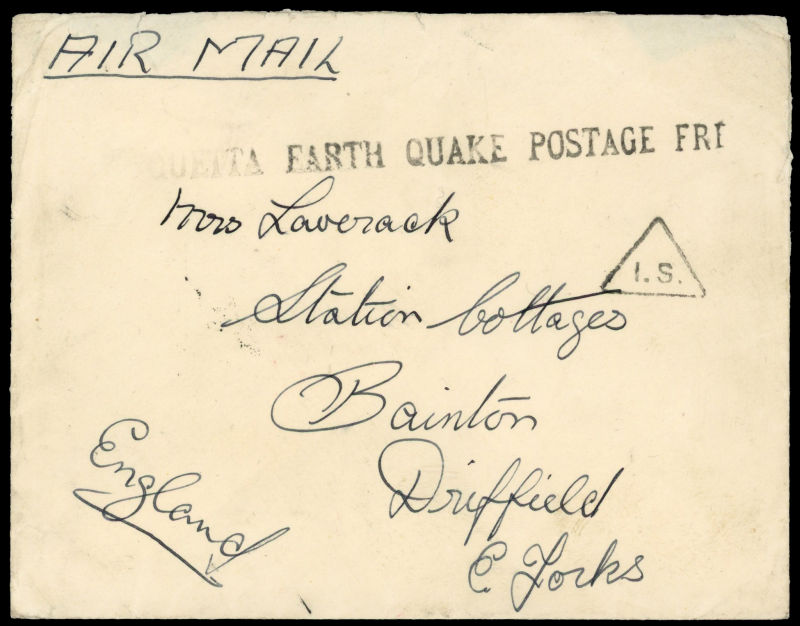 AIR MAIL
QUETTA EARTH QUAKE POSTAGE FRE
Mrs Laverack
I.S.
Station Cottages
Bainton
Driffield
E. Yorks
England